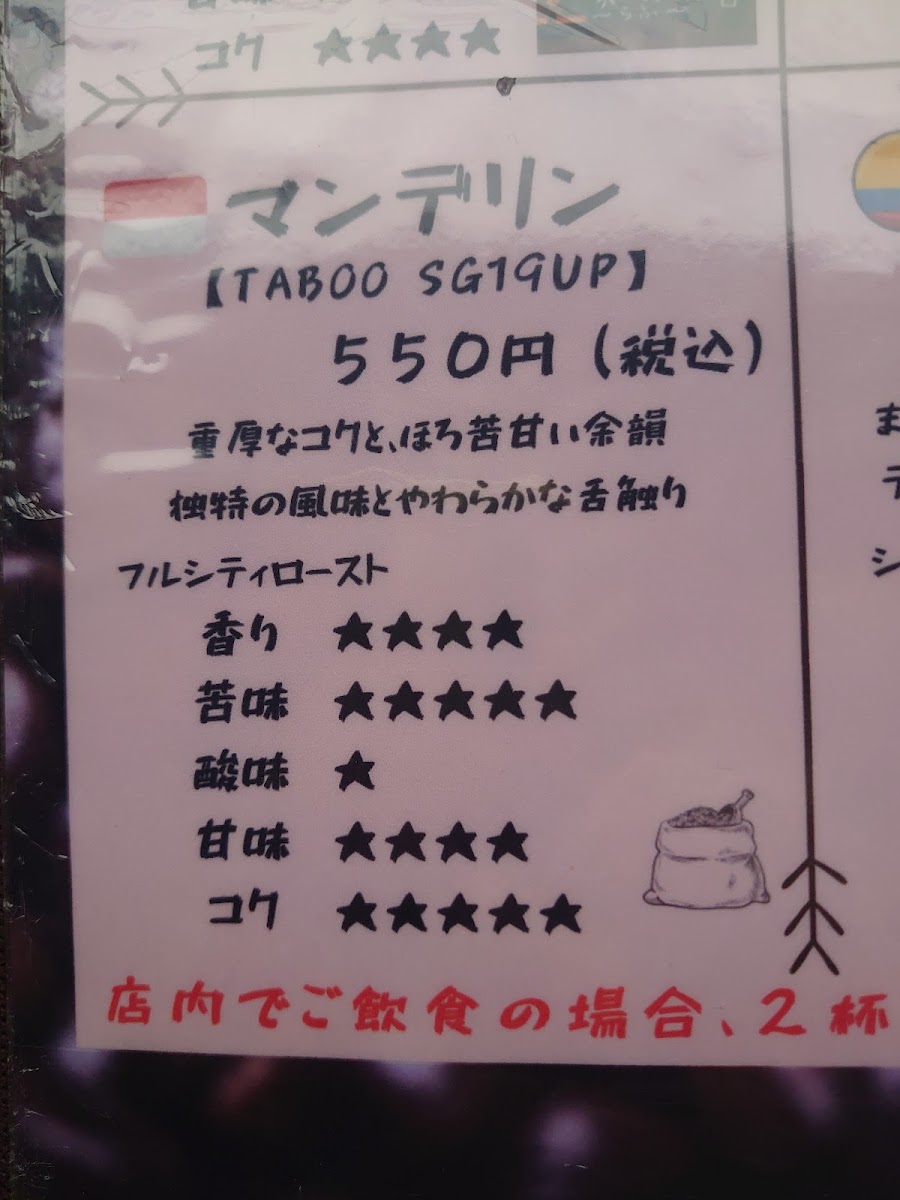 コク ★★★★
マンデリン
【TABOO SG19UP】
550円(税込)
重厚なコクと、ほろ苦甘い余韻
独特の風味とやわらかな舌触り
フルシティロースト
香り ★★★★
苦味 ★★★★★
酸味 ★
甘味 ★★★★
コク ★★★★★
店内でご飲食の場合、2杯
ま
シ